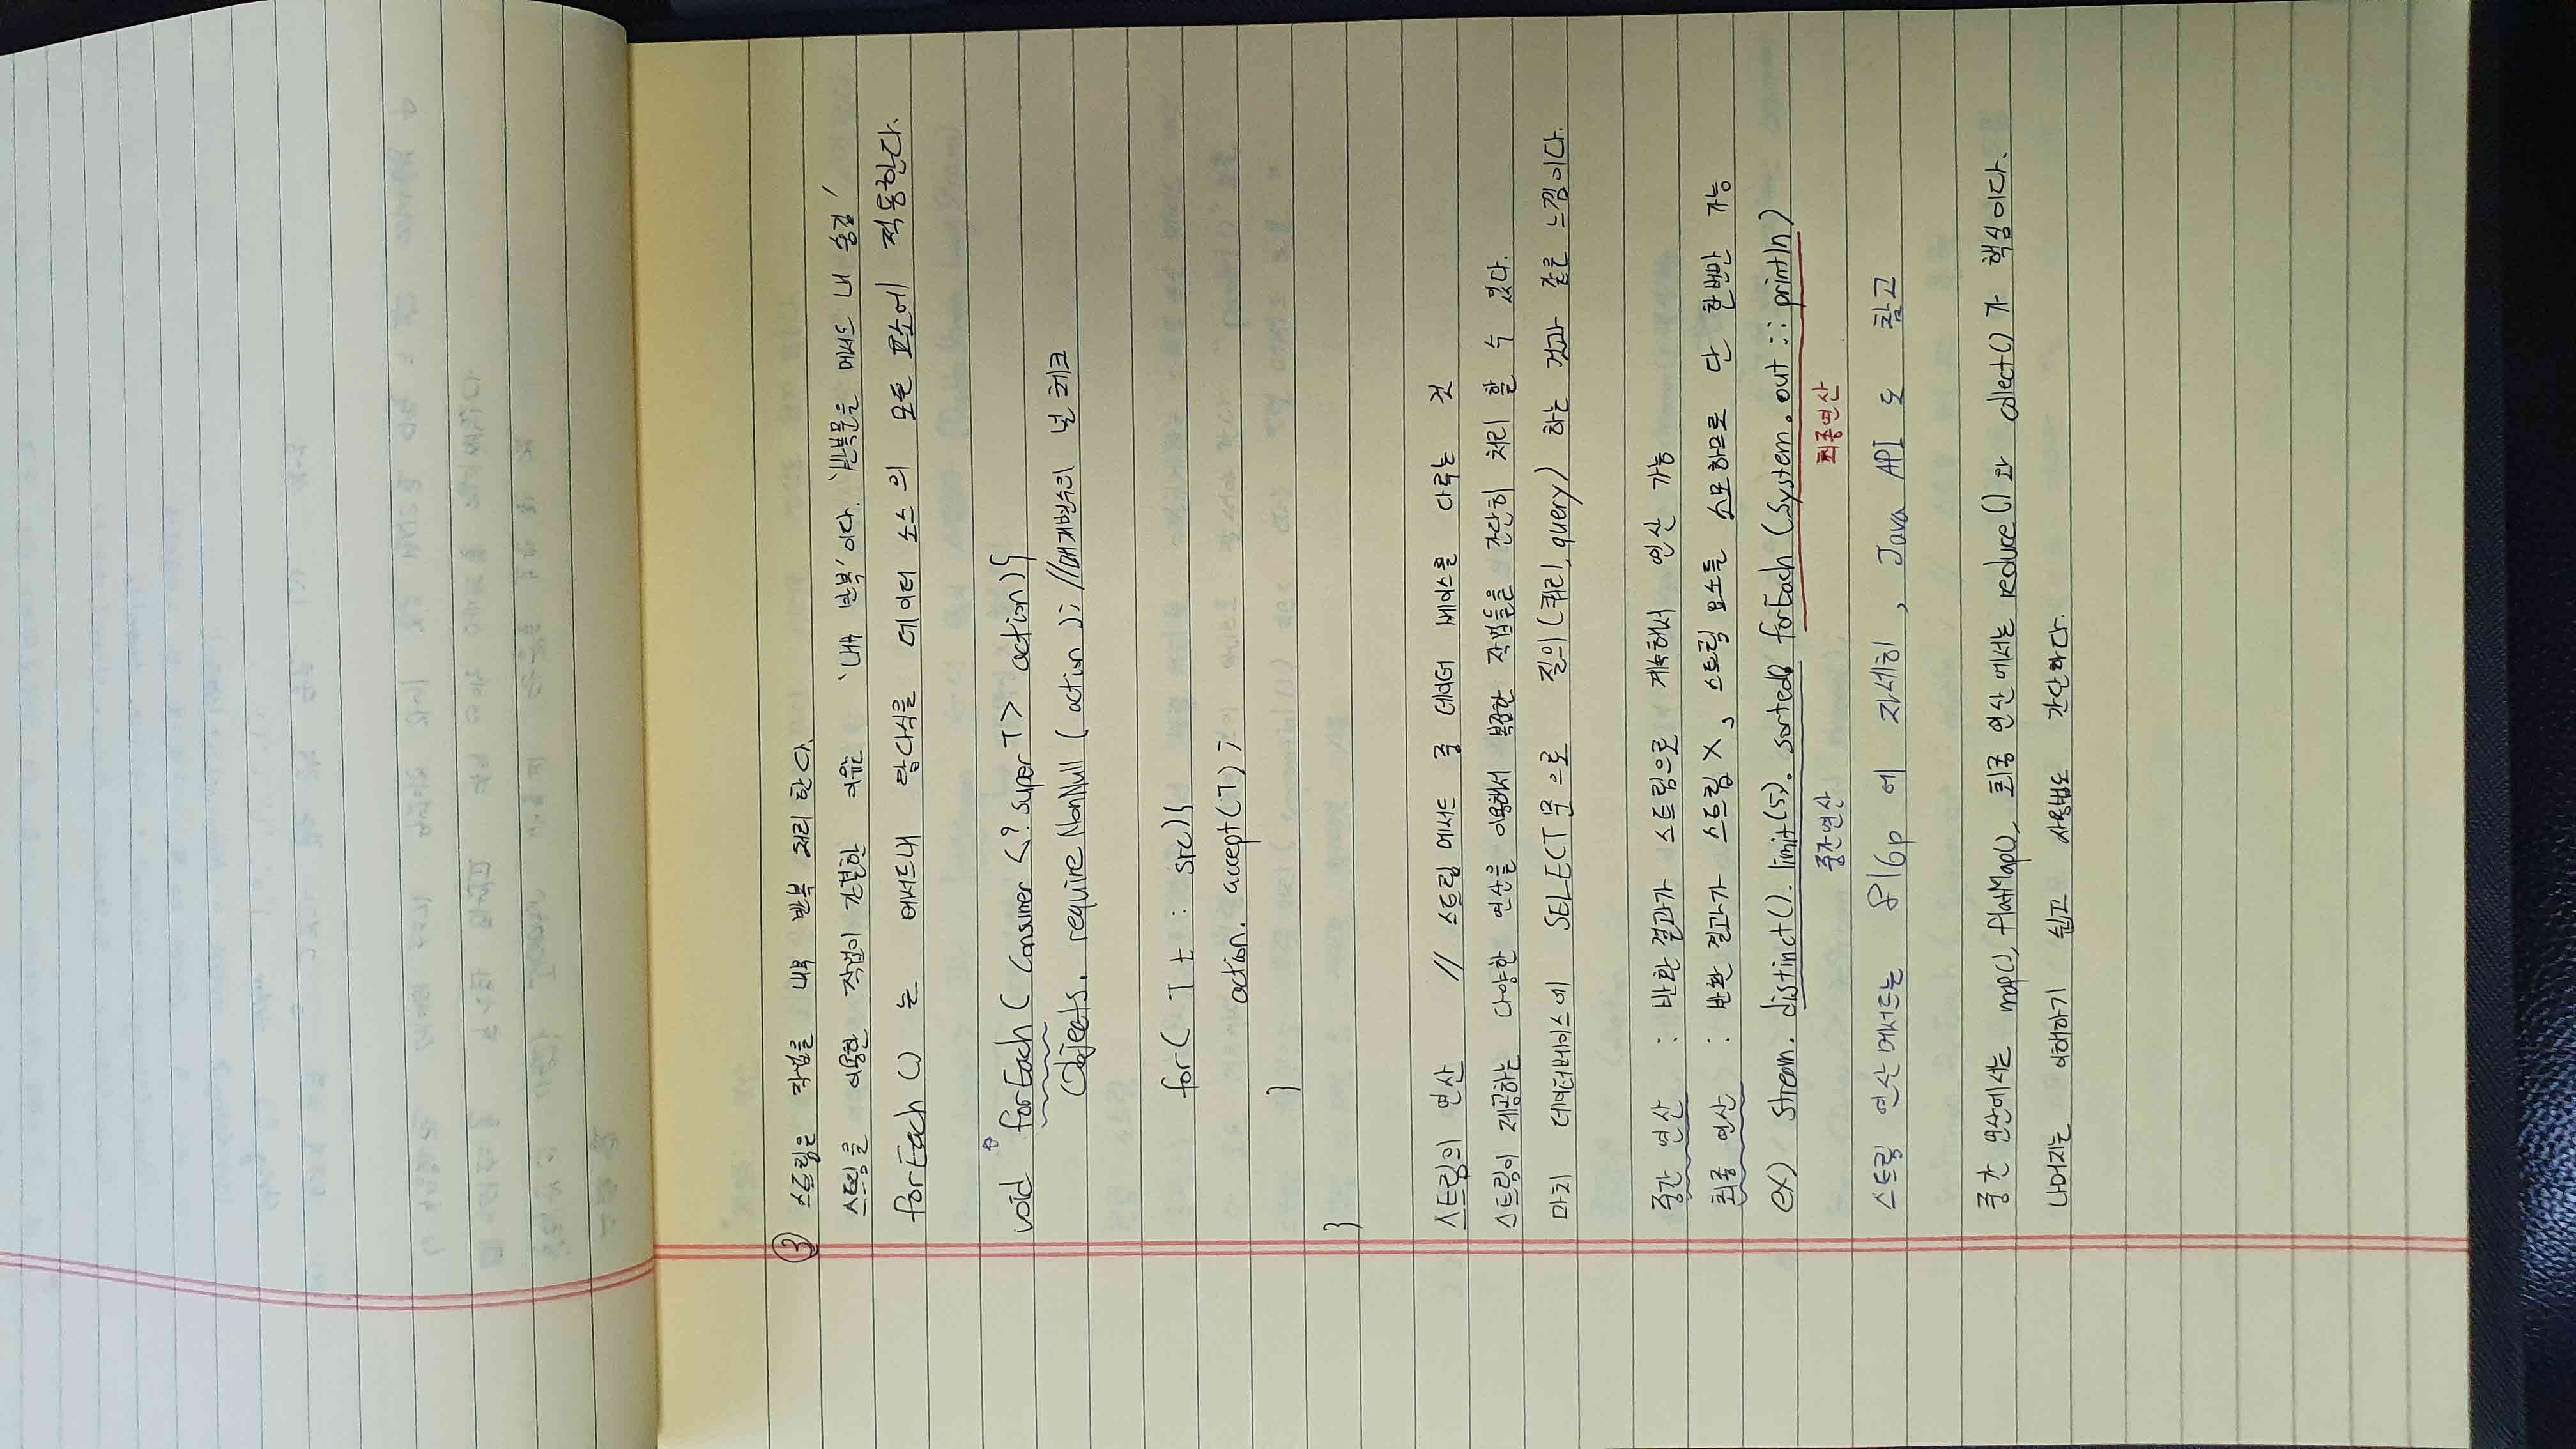 ③ 스트림은 작업을 내부 반복 처리 한다.
스트림을 이용한 작업이 간결한 이유는 '내부 반복'이다. '반복문을 메서드 내 숨김'
forEach() 는 메서드내 람다식을 데이터 소스의 모든 요소에 적용한다.
void forEach ( Consumer <? super T> action){
Objects. requireNonNull ( action ); //매개변수의 널 체크
for( T t : src){
action. accept(T) ;
}
}
스트림의 연산 // 스트림 메서드 중 데이터 베이스를 다루는 것
스트림이 제공하는 다양한 연산을 이용해서 복잡한 작업들을 간단히 처리 할 수 있다.
마치 데이터베이스에 SELECT문으로 질의(쿼리, query) 하는 것과 같은 느낌이다.
중간 연산 : 반환 결과가 스트림으로 계속해서 연산 가능
최종 연산 : 반환 결과가 스트림 X, 스트림 요소를 소모하므로 단 한번만 가능
ex) stream. distinct(). limit(5). sorted() forEach (System. out :: println)
중간연산 최종연산
스트림 연산 메서드는 816p 에 자세히, Java API 도 참고
중간 연산에서는 map(), flatMap(), 최종 연산에서는 reduce() 와 collect() 가 핵심이다.
나머지는 이해하기 쉽고 사용법도 간단하다.